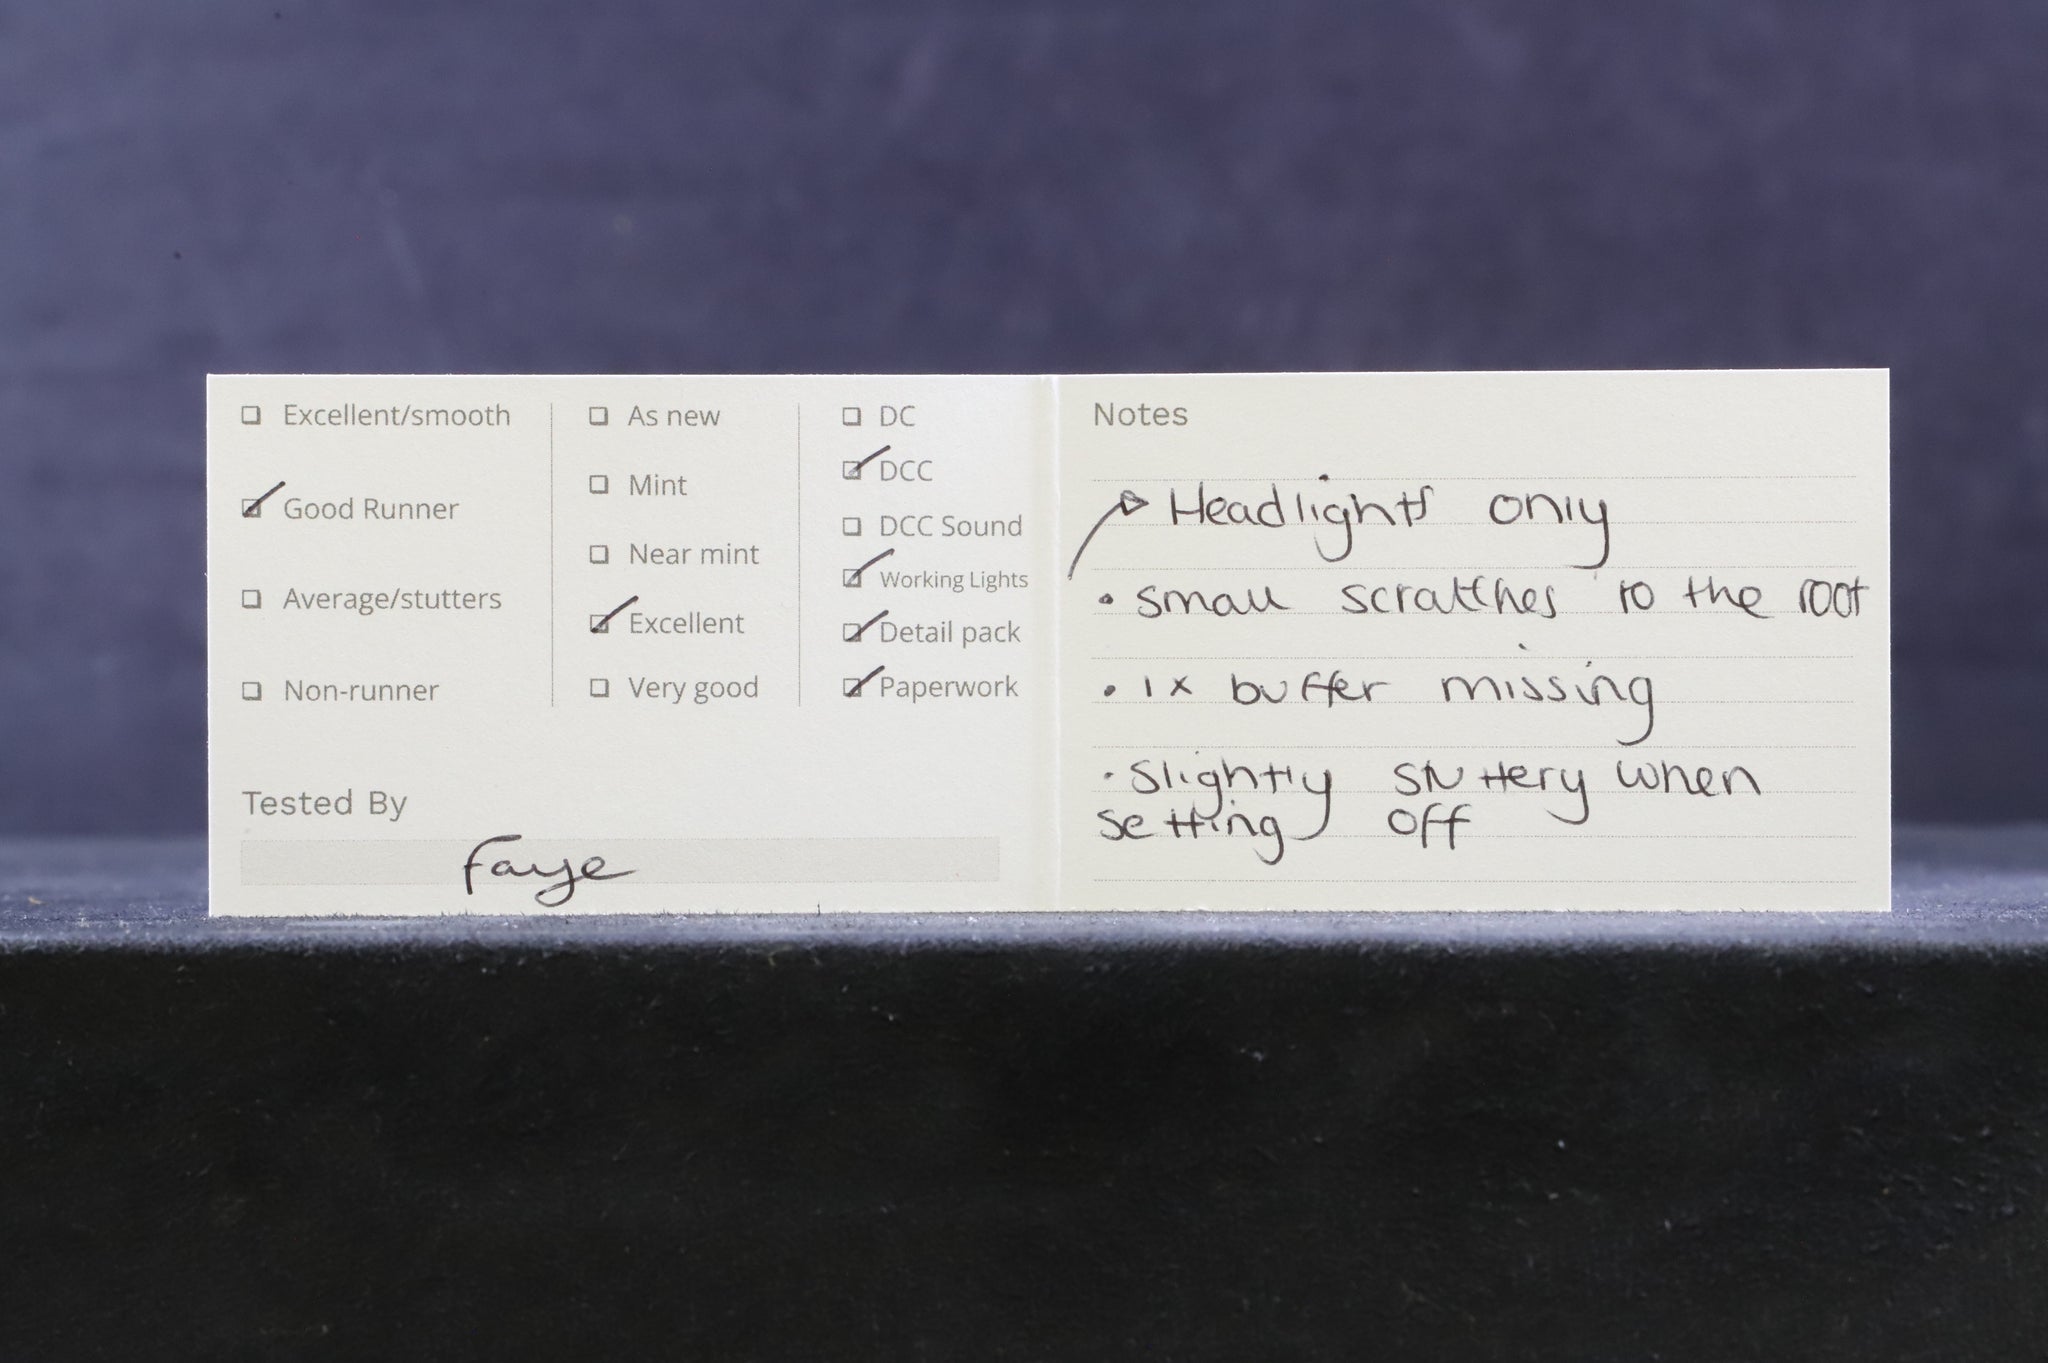 ☐ Excellent/smooth
☑ Good Runner
☐ Average/stutters
☐ Non-runner
☐ As new
☐ Mint
☐ Near mint
☑ Excellent
☐ Very good
☐ DC
☑ DCC
☐ DCC Sound
☑ Working Lights
☑ Detail pack
☑ Paperwork
Tested By
Faye
Notes
Headlights only
• small scratches to the roof
• 1x buffer missing
• slightly stuttery when
setting off